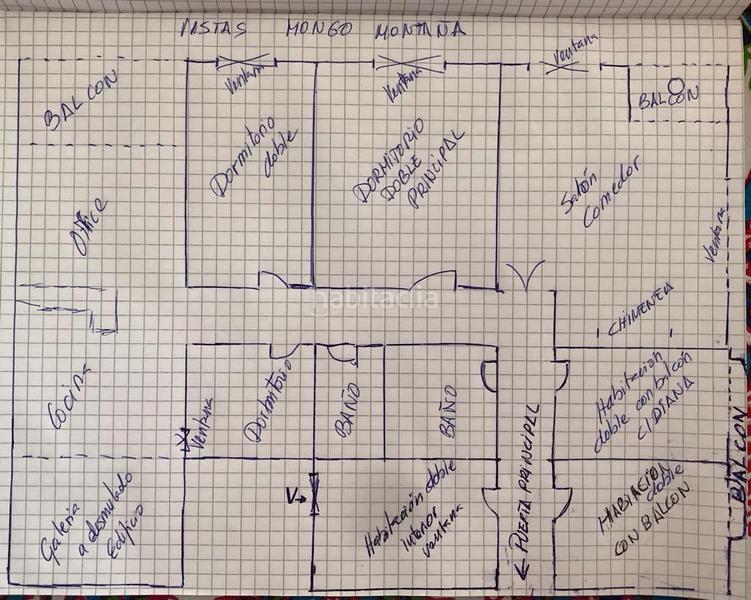 VISTAS MONGO MONTAÑA
ventana
ventana
ventana
BALCON
BALCON
Dormitorio
doble
DORMITORIO
DOBLE
PRINCIPAL
Salón
Comedor
Office
ventana
habitaclia
CHIMENEA
Cocina
Ventana
Dormitorio
BAÑO
BAÑO
Habitación
doble con balcón
C/DIANA
BALCON
Galeria
a
Edificio
V→
Habitación doble
interior
ventana
PUERTA PRINCIPAL
HABIACION
doble
CON BALCON